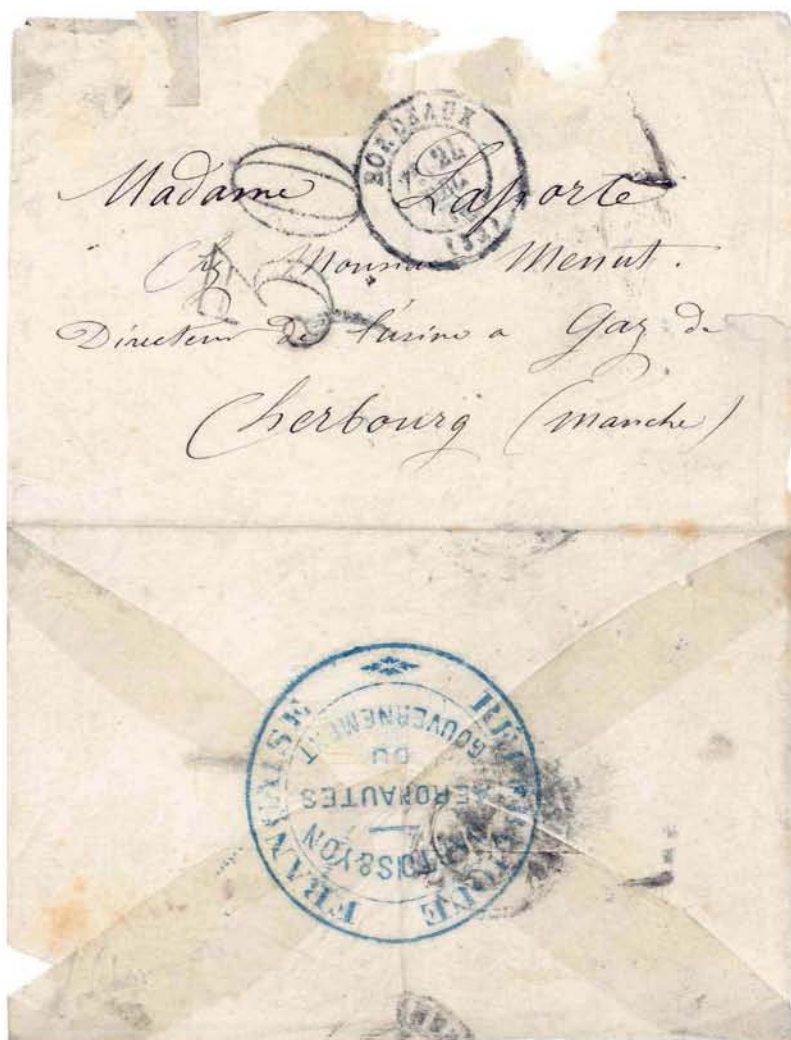 BORDEAUX
24
(32)
Madame Laporte
Chez Monsieur Menut.
Directeur de l'usine a Gaz de
Cherbourg (Manche)
REPUBLIQUE FRANÇAISE
&YON
AERONAUTES
DU
GOUVERNEMENT